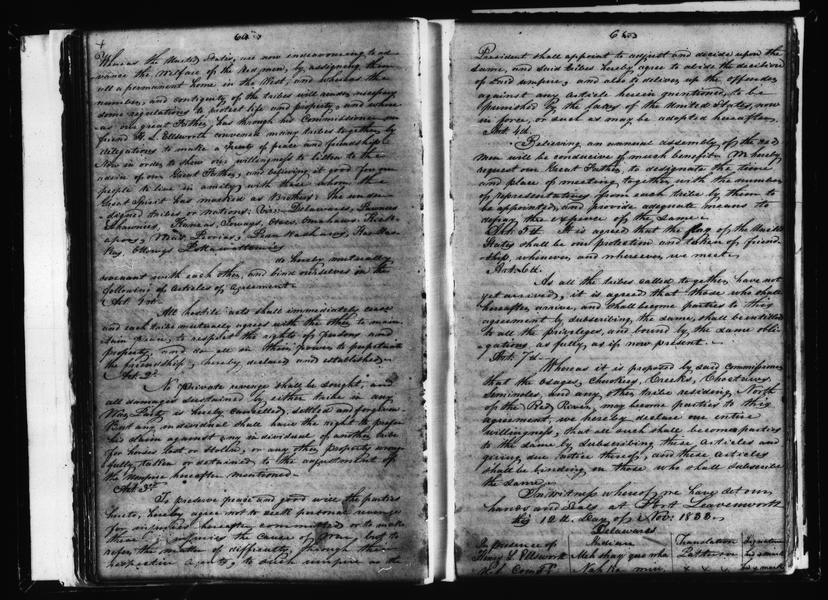 60
Whereas the United States, are now endeavouring to ad-
vance the Welfare of the Red men, by assigning them
all a permanent home in the West, and whereas the
number, and contiguity of the tribes will render necessary
some regulations to protect life and property, and where-
as our great Father, has through his Commissioner our
friend H. L. Ellsworth convened many tribes together, by
delegations to make a treaty of peace and friendship
Now in order to show our willingness to listen to the
advice of our Great Father, and believing it good for our
people to live in amity with those whom the
Great Spirit has marked as Brothers; the un-
signed tribes or Nations; Viz: Delawares, Pawnees
Shawnees, Kansas, Ioways, Otoes, Omahaws, Kick-
apoos, Weas, Peorias,
Ottoways
do hereby mutually
covenant with each other, and bind ourselves in the
following of articles of agreement.
Art. 1st.
All hostile acts shall immediately cease
and each tribe mutually agrees with the other to main-
tain peace, to respect the rights of persons and
property, and do all in their power to perpetuate
the friendship, hereby declared and established.
Art. 2d.
No Private revenge shall be sought, and
all damages sustained by either tribe in any
War Party is hereby cancelled, settled and forgiven.
But any individual shall have the right to prefer
his claim against any individual of another tribe
for horses lost or stolen, or any other property wrong-
fully taken or detained, to the adjustment of
the Umpire hereafter mentioned.
Art. 3d.
To preserve peace and good will the parties
hereto, hereby agree not to seek personal revenge
for injuries hereafter committed or to make
these injuries the Cause of War, but to
refer the matter of difficulty, through their
respective Agents, to such umpire as the
President shall appoint to adjust and decide upon the
same, and said tribes hereby agree to abide the decision
of said umpire, and also to deliver up the offender
against any article herein mentioned, to be
punished by the Laws of the United States, now
in force, or such as may be adopted hereafter.
Art. 4th.
Believing an annual assembly of the red
men will be conducive of much benefit We hereby
request our Great Father, to designate the time
and place of meeting, together with the number
of representatives from each tribe by them to
be appointed, and provide adequate means to
defray the expence of the same.
Art. 5th. It is agreed that the flag of the United
States shall be our protection and token of friend-
ship, whenever, and wherever we meet.
Art. 6th.
As all the tribes called together have not
yet arrived, it is agreed that those who shall
hereafter arrive, and shall become parties to this
agreement by subscribing the same, shall be entitled
to all the privileges, and bound by the same obli-
gations as fully, as if now present.
Art. 7th.
Whereas it is proposed by said Commissioner
that the Osages, Cherokees, Creeks, Choctaws
Seminoles, and any other tribe residing North
of the Red River, may become parties to this
agreement, we hereby declare our entire
willingness, that all such shall become parties
to the same by subscribing these Articles and
giving due notice thereof, and these Articles
shall be binding on those who shall subscribe
the same.
In witness whereof, we have set our
hands and Seals at Fort Leavenworth
this 12th Day of Nov. 1833.
Delawares
In presence of Indian Translation Signature
Henry L. Ellsworth Meh shay quo wha Patterson his x mark